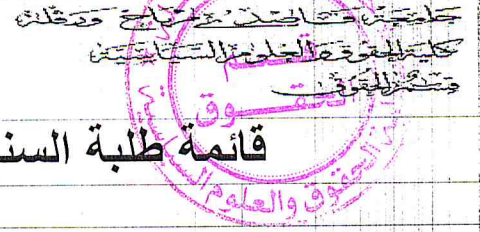 جامعة قاصدي مرباح ورقلة
كلية الحقوق والعلوم السياسية
قسم الحقوق
قائمة طلبة السن
قسم
الحقوق
الحقوق والعلوم السياسية